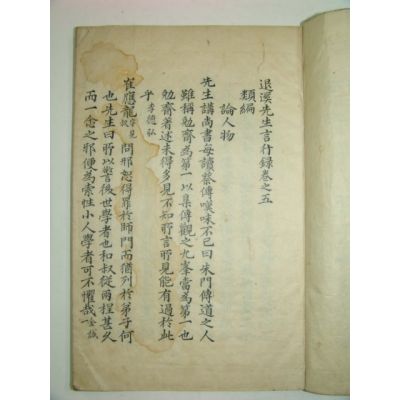 退溪先生言行錄卷之五
類編
論人物
先生講尚書每讀蔡傳嘆味不已曰朱門傳道之人
雖稱勉齋爲第一以集傳觀之九峯當爲第一也
勉齋著述未得多見不知所言所見能有過於此
乎 李德弘
崔應龍字見叔問邢恕得罪於師門而猶列於弟子何
也先生曰所以警後世學者也和叔從兩程甚久
而一念之邪便爲索性小人學者可不懼哉金誠一